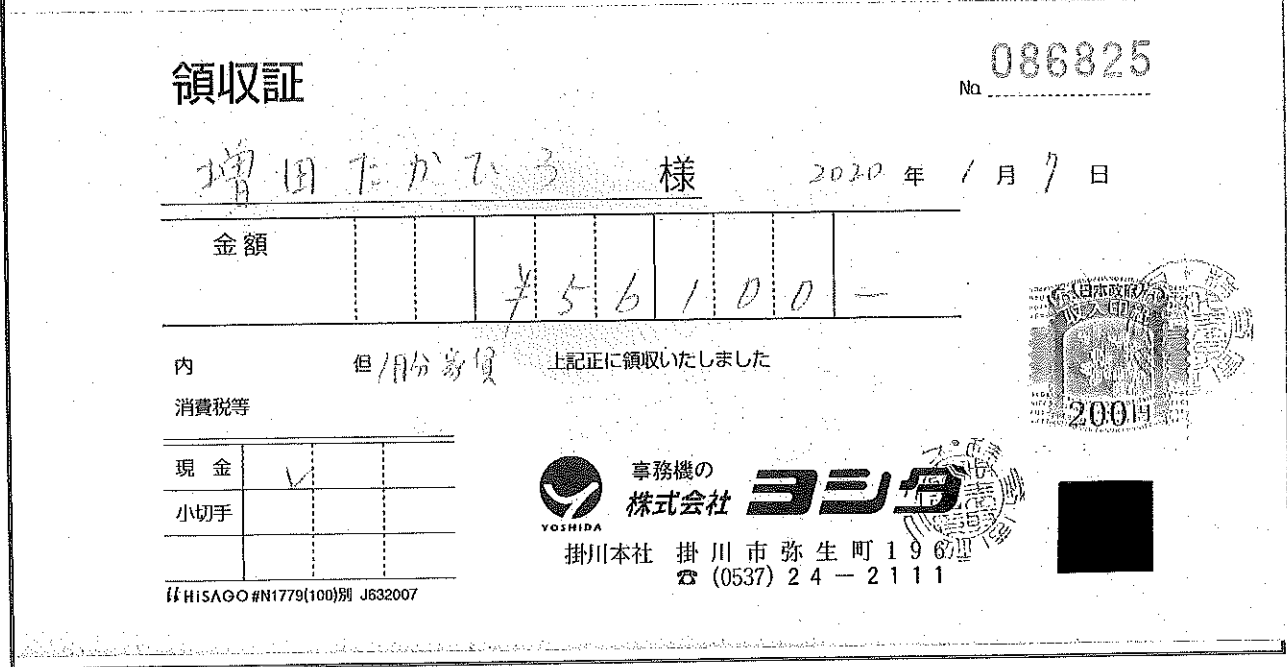 領収証
No. 086825
増田たかひろ 様 2020年1月7日
金額 ¥56100-
内 但 1月分家賃 上記正に領収いたしました
消費税等
日本政府
収入印紙
200円
現金 レ
小切手
YOSHIDA
事務機の
株式会社 ヨシダ
掛川本社 掛川市弥生町196
☎(0537)24-2111
HiSAGO #N1779(100)別 J632007